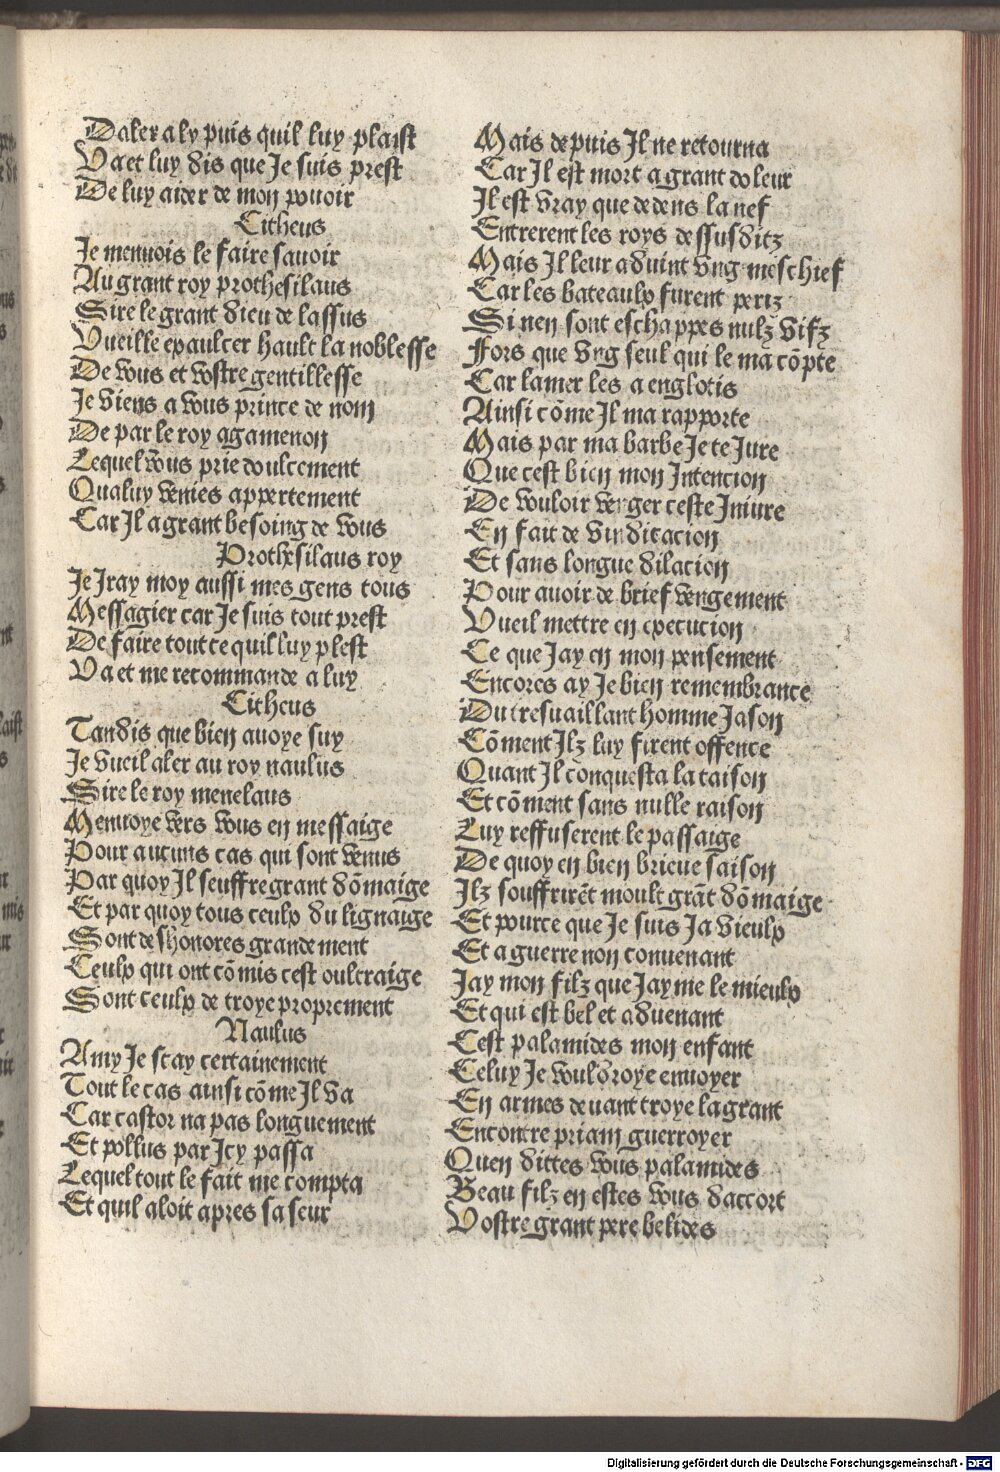 Daler a ly puis quil luy plaist
Va et luy dis que Je suis prest
De luy aider de mon pouoir
Citheus
Je menuois le faire sauoir
Au grant roy prothesilaus
Sire le grant dieu de lassus
Vueille epaulcer hault la noblesse
De vous et vostre gentillesse
Je viens a vous prince de nom
De par le roy agamenon
Lequel vous prie doulcement
Qualuy venies appertement
Car Jl a grant besoing de vous
Prothesilaus roy
Je Jray moy aussi mes gens tous
Messagier car Je suis tout prest
De faire tout ce quil luy plest
Va et me recommande a luy
Citheus
Tandis que bien auoye suy
Je vueil aler au roy naulus
Sire le roy menelaus
Menuoye vers vous en messaige
Pour aucuns cas qui sont venus
Par quoy Jl seuffre grant dõmaige
Et par quoy tous ceulx du lignaige
Sont deshonores grandement
Ceulx qui ont cõmis cest oultraige
Sont ceulx de troye proprement
Naulus
Amy Je scay certainement
Tout le cas ainsi cõme Jl va
Car castor na pas longuement
Et pollus par Jcy passa
Lequel tout le fait me compta
Et quil aloit apres sa seur
Mais depuis Jl ne retourna
Car Jl est mort a grant doleur
Jl est vray que dedens la nef
Entrerent les roys dessusditz
Mais Jl leur aduint vng meschief
Car les bateaulx furent periz
Si nen sont eschappes nulz vifz
Fors que vng seul qui le ma cõpte
Car la mer les a englotis
Ainsi cõme Jl ma rapporte
Mais par ma barbe Je te Jure
Que cest bien mon Jntencion
De vouloir venger ceste Jniure
En fait de vindicacion
Et sans longue dilacion
Pour auoir de brief vengement
Vueil mettre en execucion
Ce que Jay en mon pensement
Encores ay Je bien remembrance
Du tresuaillant homme Jason
Cõment Jlz luy firent offence
Quant Jl conquesta la taison
Et cõment sans nulle raison
Luy reffuserent le passaige
De quoy en bien brieue saison
Jlz souffrirẽt moult grãt dõmaige
Et pource que Je suis Ja vieulx
Et a guerre non conuenant
Jay mon filz que Jayme le mieulx
Et qui est bel et aduenant
Cest palamides mon enfant
Celuy Je vouldroye enuoyer
En armes deuant troye la grant
Encontre priam guerroyer
Quen dittes vous palamides
Beau filz en estes vous daccort
Vostre grant pere belides
Digitalisierung gefördert durch die Deutsche Forschungsgemeinschaft - DFG